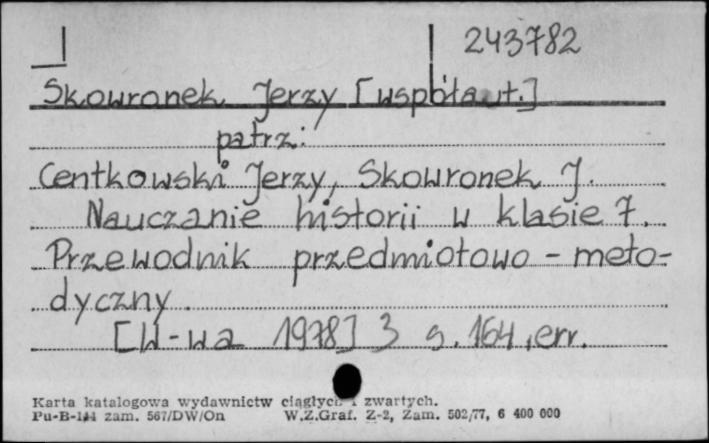 243782
Skowronek Jerzy [współaut.]
patrz:
Centkowski Jerzy, Skowronek J.
Nauczanie historii w klasie 7.
Przewodnik przedmiotowo - meto-
dyczny.
[W-wa 1978] 3 s. 164, err.
Karta katalogowa wydawnictw ciągłych i zwartych.
Pu-B-111 zam. 567/DW/On W.Z.Graf. Z-2, Zam. 502/77, 6 400 000